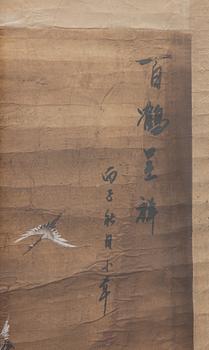 百鶴呈祥
丙子秋月小華